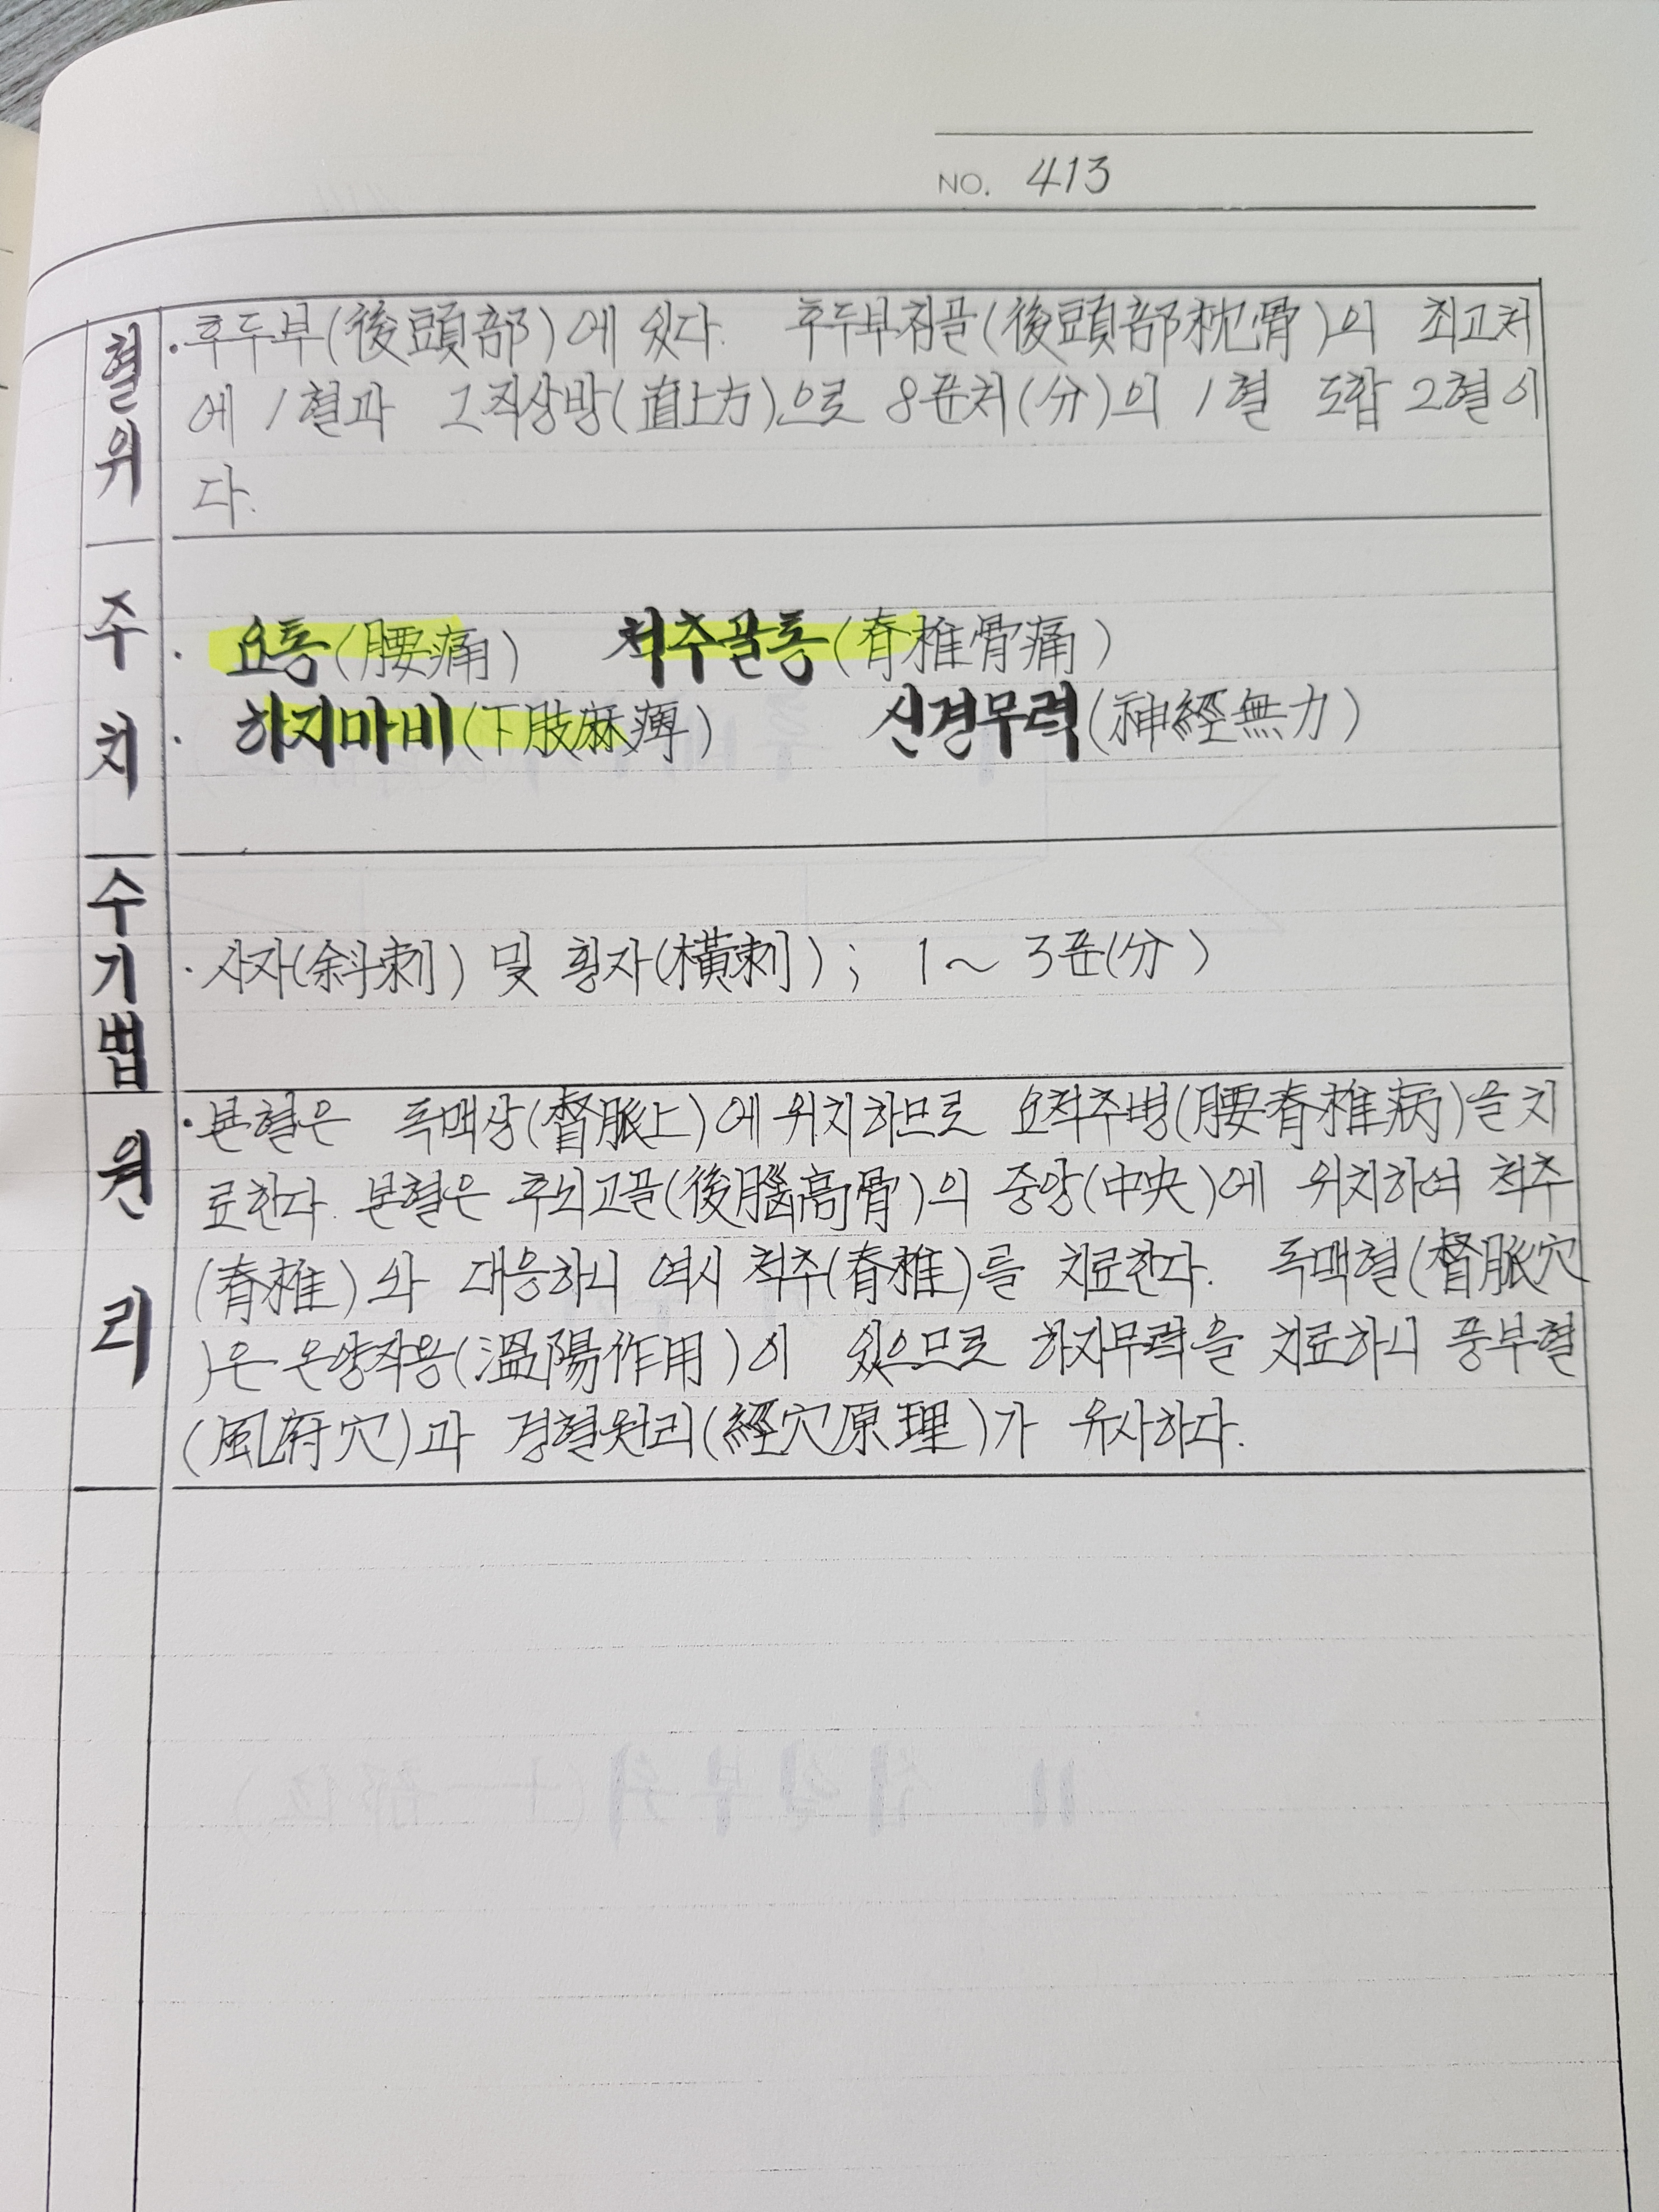 NO. 413
혈위
·후두부(後頭部)에 있다. 후두부침골(後頭部枕骨)의 최고처
에 1혈과 그직상방(直上方)으로 8푼처(分)의 1혈 도합 2혈이
다.
주치
· 요통(腰痛) 척추골통(脊椎骨痛)
· 하지마비(下肢麻痺) 신경무력(神經無力)
수기법
· 사자(斜刺) 및 횡자(橫刺); 1~3푼(分)
원리
·본혈은 독맥상(督脈上)에 위치하므로 요척추병(腰脊椎病)을 치
료한다. 본혈은 후뇌고골(後腦高骨)의 중앙(中央)에 위치하여 척추
(脊椎)와 대응하니 역시 척추(脊椎)를 치료한다. 독맥혈(督脈穴
)은 온양작용(溫陽作用)이 있으므로 하지무력을 치료하니 풍부혈
(風府穴)과 경혈원리(經穴原理)가 유사하다.